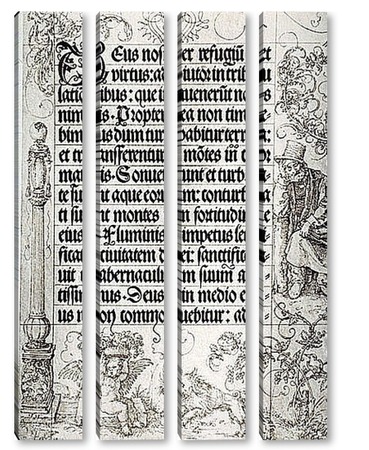 DEus noster refugiū et
virtus: adiutor in tribu
lationibus: que inuenerūt nos
nimis. Propterea non time
bimus dum turbabitur terra:
et transferentur mōtes in cor
maris. Sonuerunt et turba
te sunt aque eorum: conturba
ti sunt montes in fortitudine
eius. Fluminis impetus leti
ficat ciuitatem dei: sanctifica
uit tabernaculum suum al
tissimus. Deus in medio ei
us non commouebitur: ad